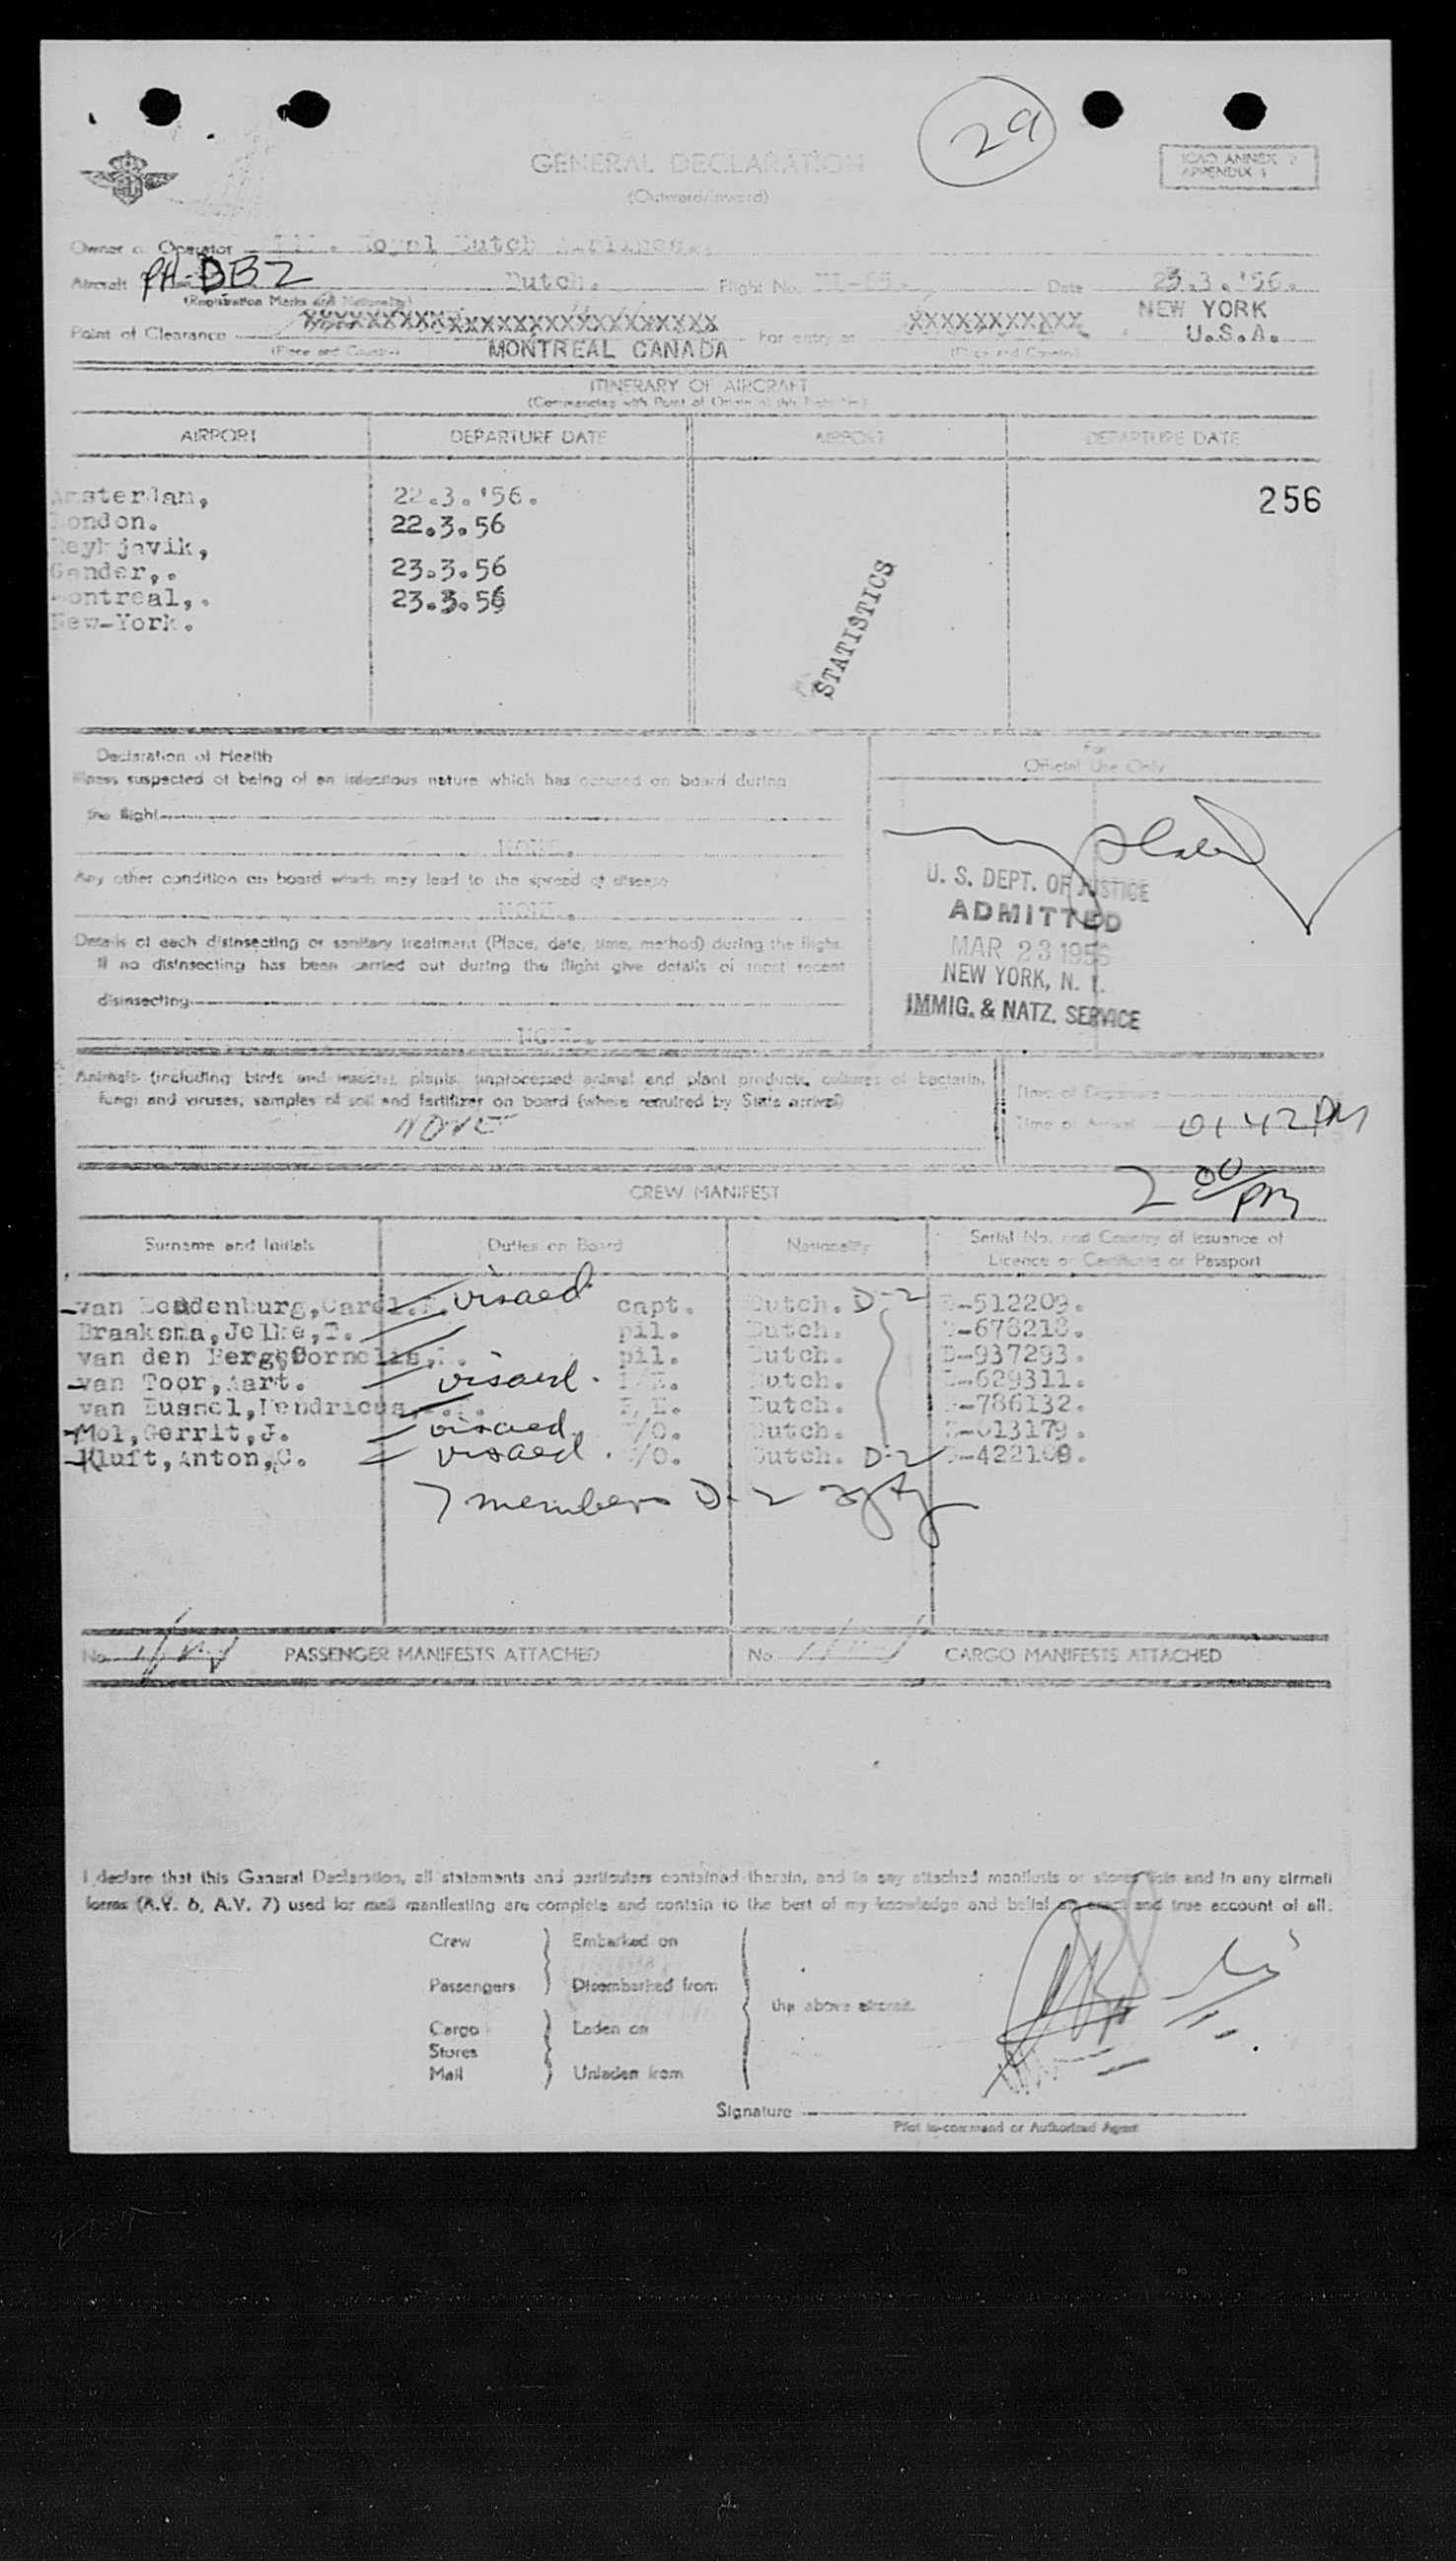 29
GENERAL DECLARATION
(Outward/Inward)
ICAO ANNEX 9
APPENDIX 1
Owner or Operator Royal Dutch Airlines.
Aircraft PH-DBZ Dutch. Flight No. Date 23.3.'56.
(Registration Marks and Nationality)
NEW YORK
Point of Clearance XXXXXXXXXXXXXXXXXXXXXXXXXXX For entry at XXXXXXXXXXX U.S.A.
(Place and Country) MONTREAL CANADA (Place and Country)
ITINERARY OF AIRCRAFT
(Commencing with Point of Origin of this
AIRPORT DEPARTURE DATE AIRPORT DEPARTURE DATE
Amsterdam, 22.3.'56. 256
London. 22.3.56
Reykjavik,
Gander,. 23.3.56
Montreal,. 23.3.56
New-York.
STATISTICS
Declaration of Health
Illness suspected of being of an infectious nature which has occured on board during
the flight
NONE.
Any other condition on board which may lead to the spread of disease
NONE.
Details of each disinsecting or sanitary treatment (Place, date, time, method) during the flight.
If no disinsecting has been carried out during the flight give details of most recent
disinsecting
NONE.
For
Official Use Only
U. S. DEPT. OF JUSTICE
ADMITTED
MAR 23 1956
NEW YORK, N. Y.
IMMIG. & NATZ. SERVICE
Animals (including birds and insects), plants, unprocessed animal and plant products, cultures of bacteria,
fungi and viruses, samples of soil and fertilizer on board (where required by State arrival)
NONE
Time of Departure
Time of Arrival 01 42 PM
2 00/PM
CREW MANIFEST
Surname and Initials Duties on Board Nationality Serial No. and Country of Issuance of
Licence or Certificate or Passport
van visaed capt. Dutch. D-2 -512209.
Braaksma,Jelke,T. pil. Dutch. -678218.
van den Berg,Cornelis, pil. Dutch. D-937293.
van Toor,Aart. visaed. Dutch. -629311.
van Bussel,Hendricus, Dutch. -786132.
Mol,Gerrit,J. visaed. /O. Dutch. -613179.
Kluft,Anton,C. visaed. /O. Dutch. D-2 -422109.
7 members D-2
No. PASSENGER MANIFESTS ATTACHED No. CARGO MANIFESTS ATTACHED
I declare that this General Declaration, all statements and particulars contained therein, and in any attached manifests or stores lists and in any airmail
forms (A.V. 6, A.V. 7) used for mail manifesting are complete and contain to the best of my knowledge and belief an exact and true account of all:
Crew Embarked on
Passengers Disembarked from
the above aircraft.
Cargo Laden on
Stores
Mail Unladen from
Signature
Pilot in-command or Authorized Agent